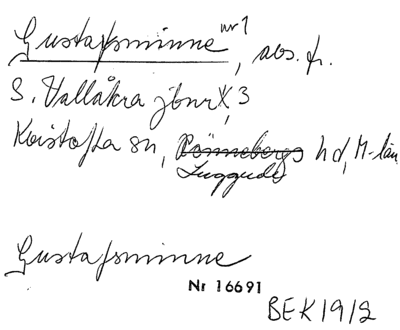 Gustafsminne nr 1, avs. fr.
S. Vallåkra jbnr X, 3
Kvistofta sn, Rönnebergs hd, M-län
Luggude
Gustafsminne
Nr 16691
BEK 19/2